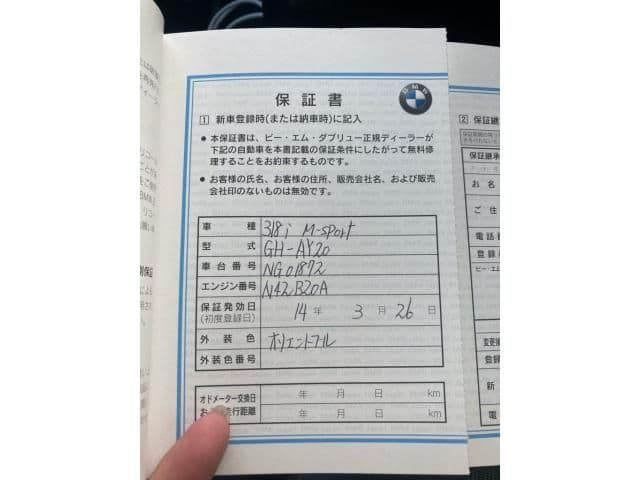 保証書
BMW
1 新車登録時(または納車時)に記入
● 本保証書は、ビー・エム・ダブリュー正規ディーラーが
下記の自動車を本書記載の保証条件にしたがって無料修
理することをお約束するものです。
● お客様の氏名、お客様の住所、販売会社名、および販売
会社印のないものは無効です。
車種 318i M-sport
型式 GH-AY20
車台番号 NG01872
エンジン番号 N42B20A
保証発効日
(初度登録日) 14年 3月 26日
外装色 オリエントブルー
外装色番号
オドメーター交換日 年 月 日 km
お 走行距離 年 月 日 km
2 保証継
保証継承
お名
ご住
電話番
登録
ビー・エム
変更後
登録
新
電